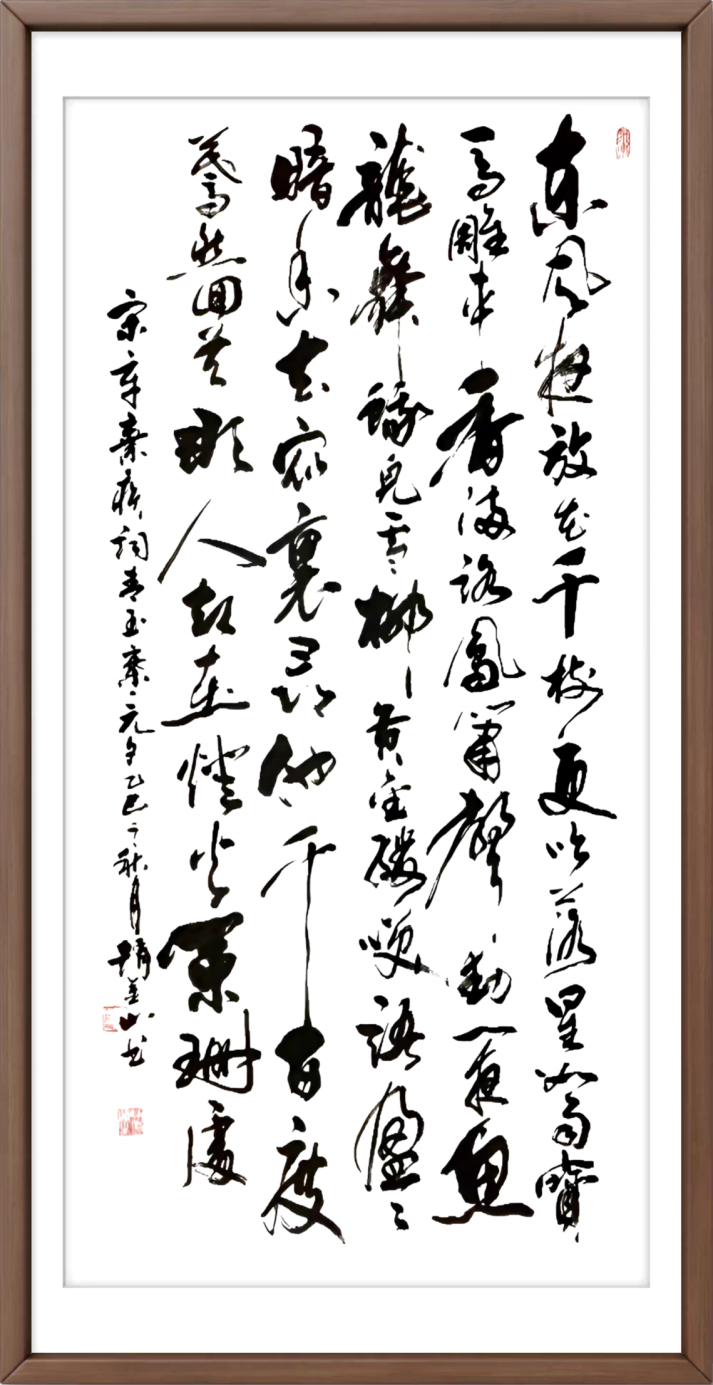 東風夜放花千樹更吹落星如雨寶
馬雕車香滿路鳳簫聲動一夜魚
龍舞蛾兒雪柳黃金縷笑語盈々
暗香去衆裏尋他千百度
驀然回首那人却在燈火闌珊處
宋辛棄疾詞青玉案元夕乙巳之秋月山书